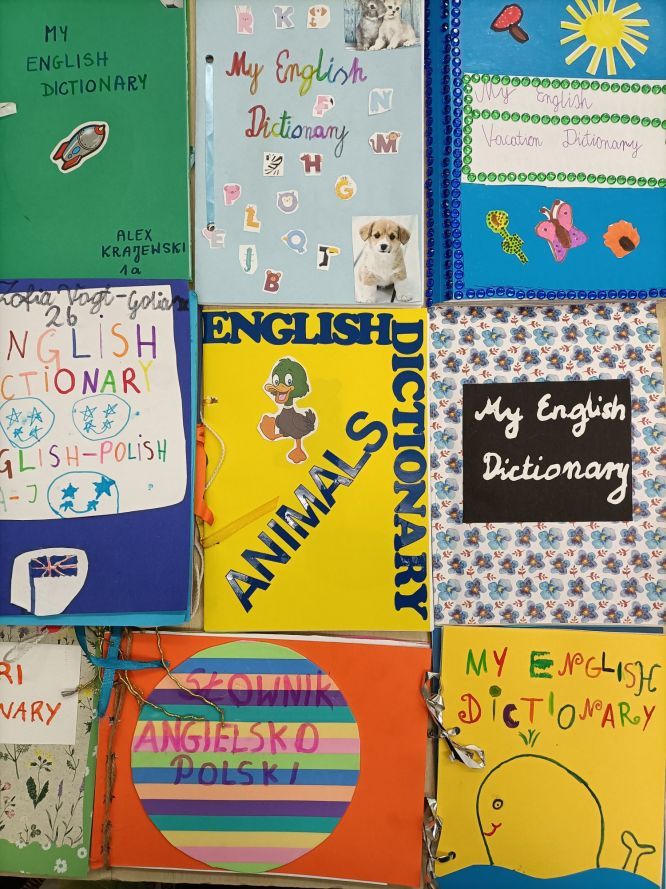 MY
ENGLISH
DICTIONARY
ALEX
KRAJEWSKI
1a
R K S
My English
F N
Dictionary
M
H
G
P L Q
E J Q T
B
My English
Vacation Dictionary
Zofia Vogt-
2b
NGLISH
CTIONARY
GLISH-POLISH
A-J
ENGLISH
DICTIONARY
ANIMALS
My English
Dictionary
RI
NARY
SŁOWNIK
ANGIELSKO
POLSKI
MY ENGLISH
DICTIONARY